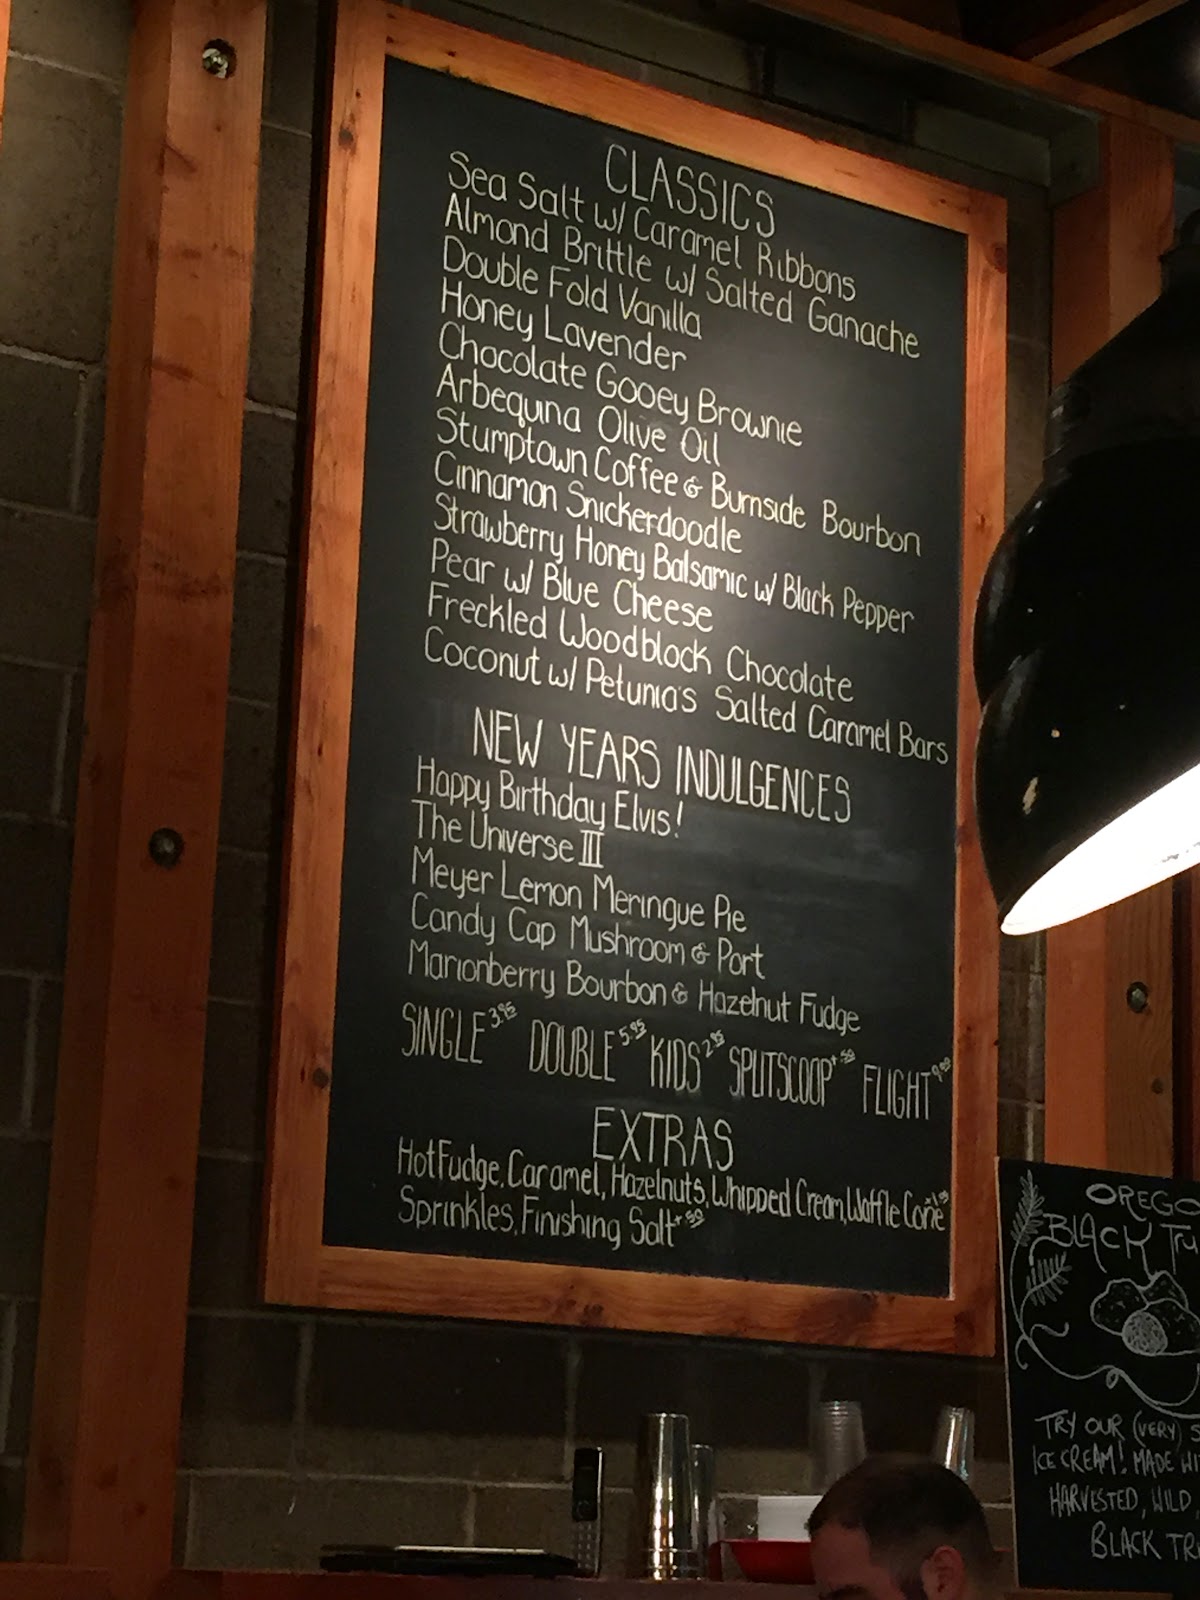 CLASSICS
Sea Salt w/ Caramel Ribbons
Almond Brittle w/ Salted Ganache
Double Fold Vanilla
Honey Lavender
Chocolate Gooey Brownie
Arbequina Olive Oil
Stumptown Coffee & Burnside Bourbon
Cinnamon Snickerdoodle
Strawberry Honey Balsamic w/ Black Pepper
Pear w/ Blue Cheese
Freckled Woodblock Chocolate
Coconut w/ Petunia's Salted Caramel Bars
NEW YEARS INDULGENCES
Happy Birthday Elvis!
The Universe III
Meyer Lemon Meringue Pie
Candy Cap Mushroom & Port
Marionberry Bourbon & Hazelnut Fudge
SINGLE 3.95 DOUBLE 5.95 KIDS 2.95 SPLITSCOOP +.50 FLIGHT
EXTRAS
Hot Fudge, Caramel, Hazelnuts, Whipped Cream, Waffle Cone
Sprinkles, Finishing Salt +.50
OREGO
BLACK TRU
TRY OUR (VERY) S
ICE CREAM! MADE WI
HARVESTED, WILD
BLACK TR